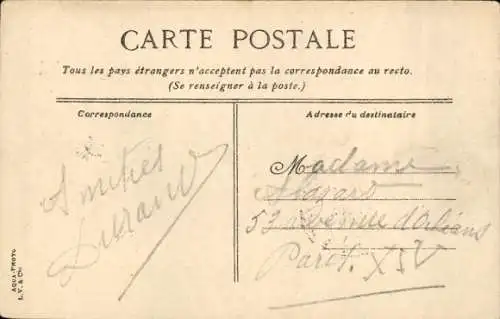 CARTE POSTALE
Tous les pays étrangers n'acceptent pas la correspondance au recto.
(Se renseigner à la poste.)
Correspondance
Adresse du destinataire
Amitiés
Madame
53 avenue d'Orléans
Paris. XIV
AQUA-PHOTO
L. V. & Cie